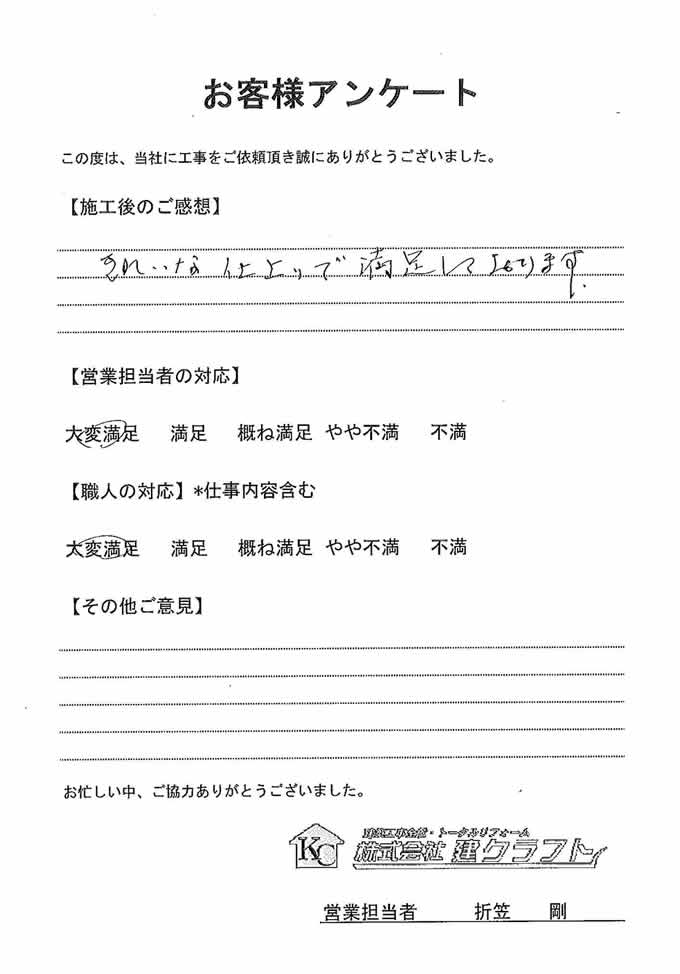 お客様アンケート
この度は、当社に工事をご依頼頂き誠にありがとうございました。
【施工後のご感想】
きれいな仕上りで満足しております。
【営業担当者の対応】
大変満足 満足 概ね満足 やや不満 不満
【職人の対応】*仕事内容含む
大変満足 満足 概ね満足 やや不満 不満
【その他ご意見】
お忙しい中、ご協力ありがとうございました。
KC
建築工事全般・トータルリフォーム
株式会社 建クラフト
営業担当者 折笠 剛